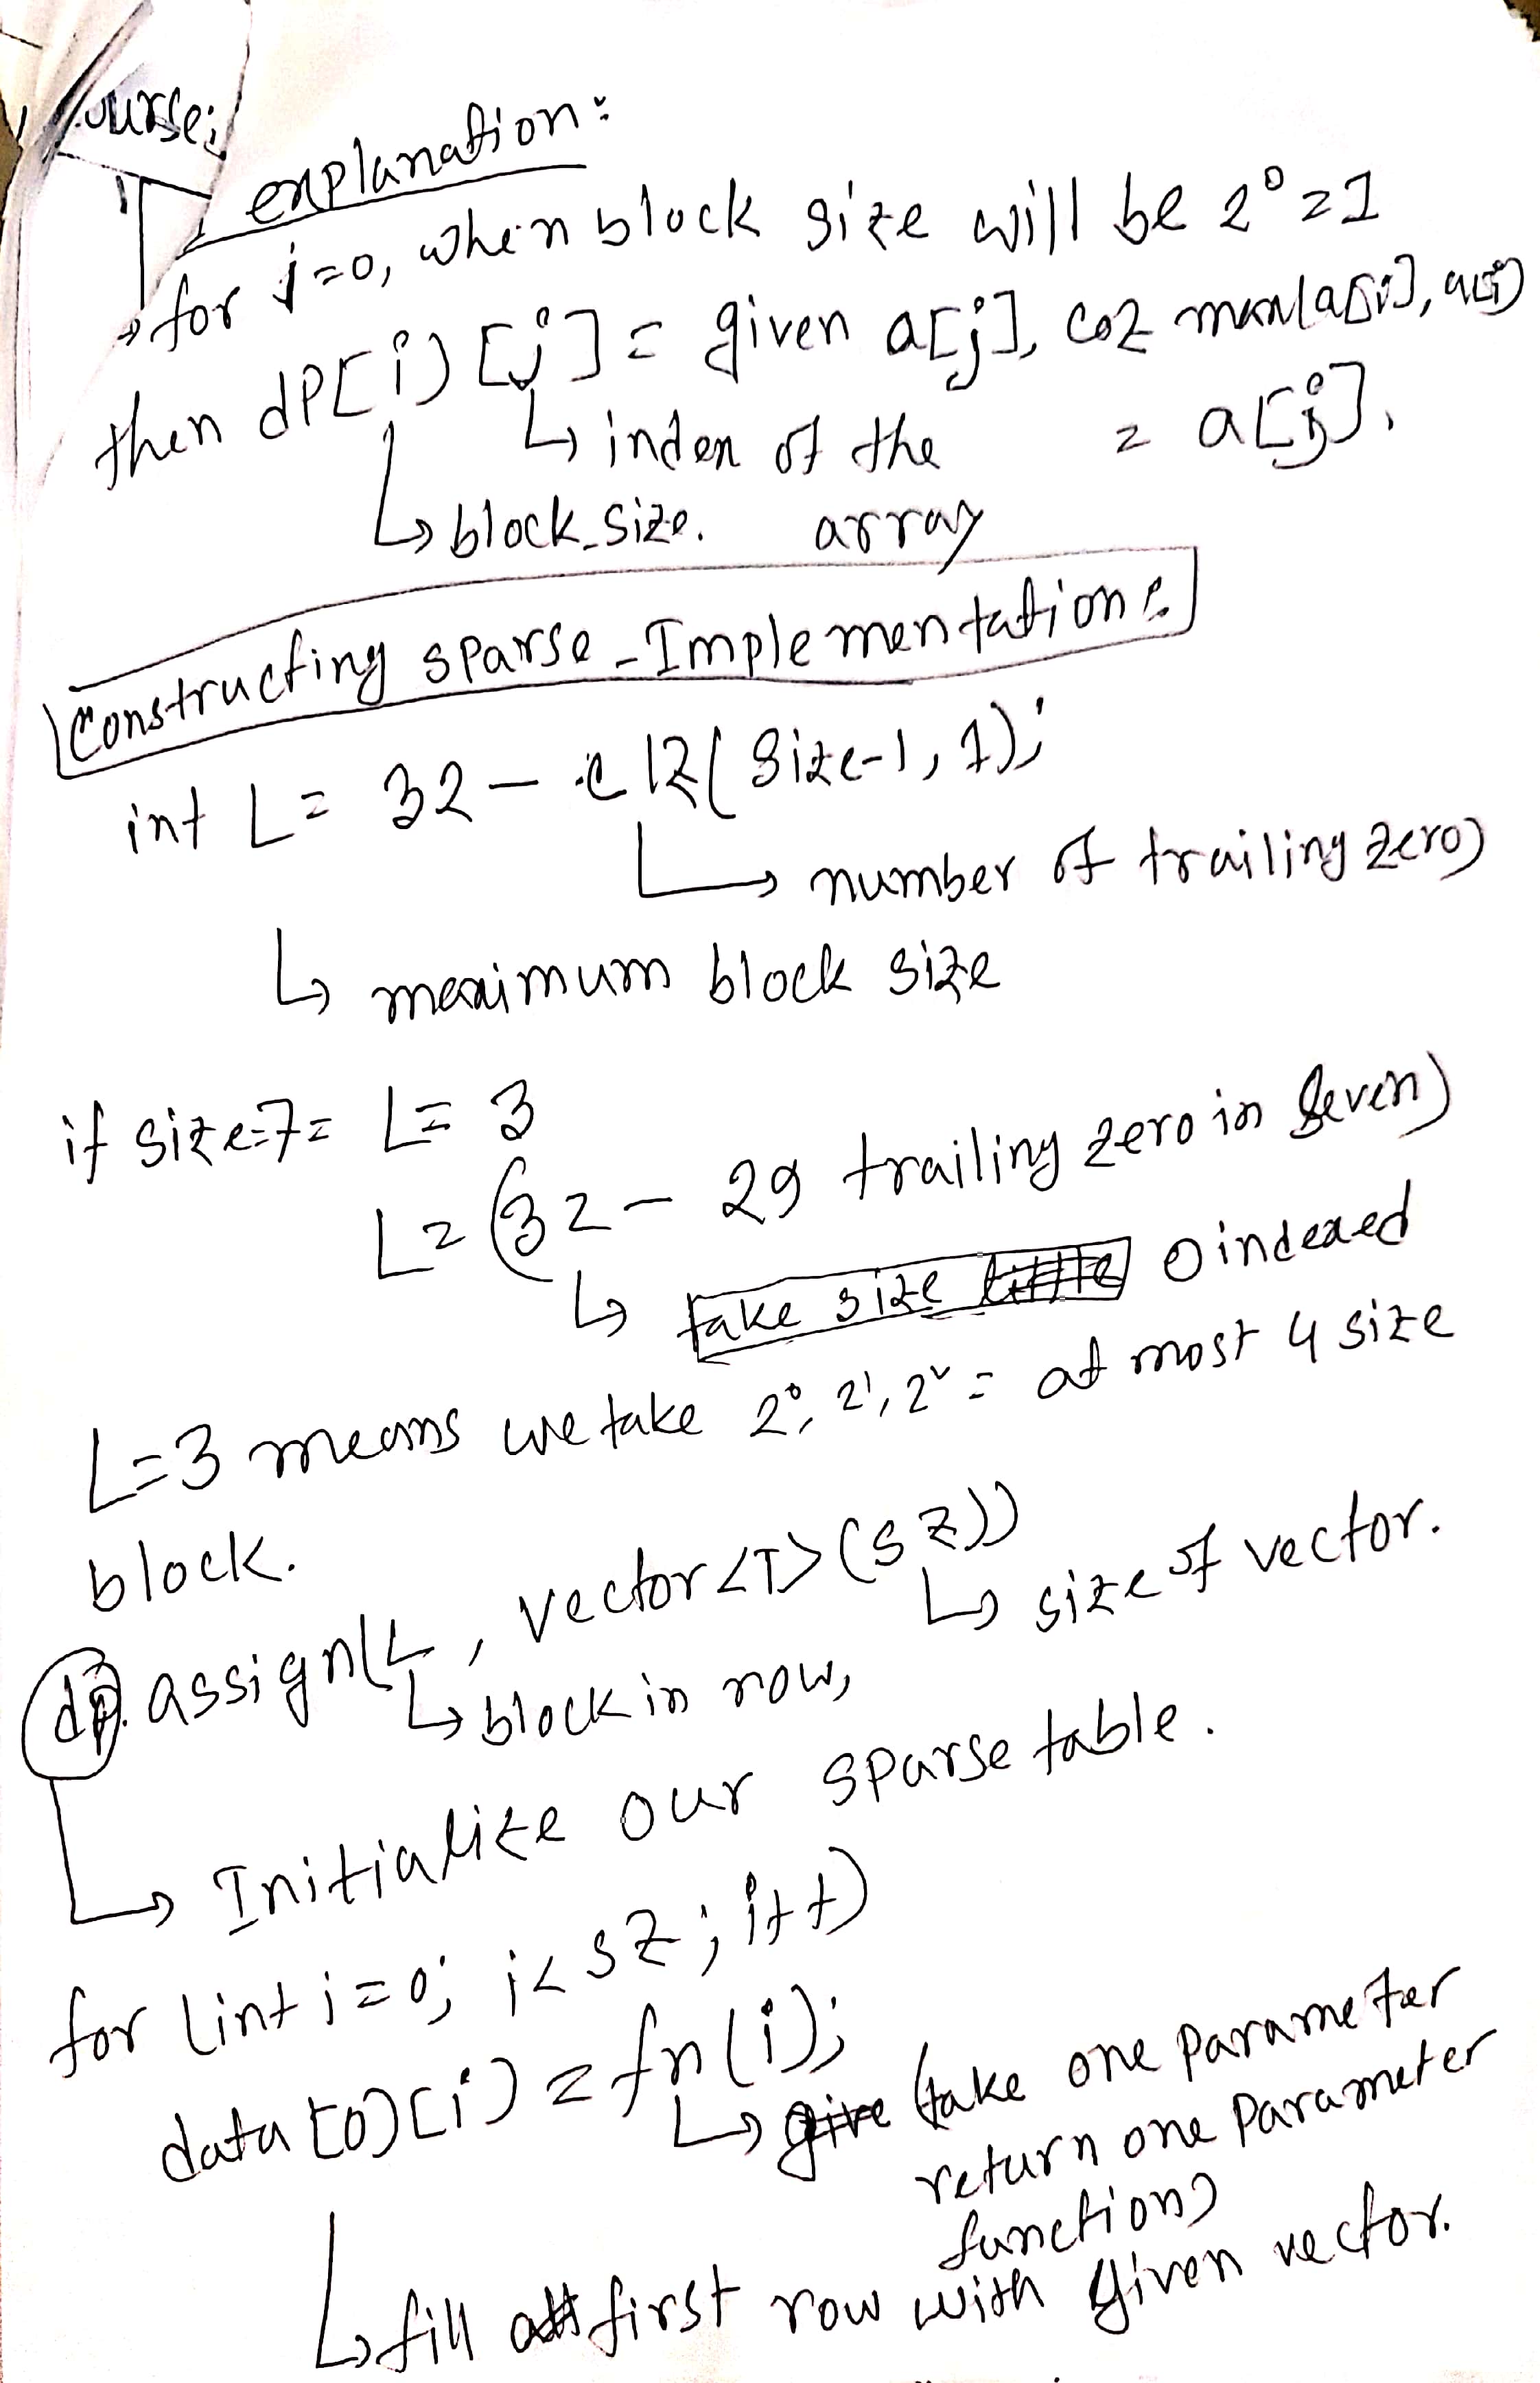 explanation:
for j=0, when block size will be 2⁰=1
then dp[i][j] = given a[j], coz max(a[j], a[j])
= a[j].
↳ index of the array
↳ block_size.
Constructing sparse - Implementation:
int L = 32 - clz(size-1, 1);
↳ number of trailing zero)
↳ maximum block size
if size=7= L= 3
L = (32 - 29 trailing zero in seven)
↳ take size 0 indexed
L=3 means we take 2⁰, 2¹, 2² = at most 4 size
block.
dp.assign(L, vector<T>(sz))
↳ size of vector.
↳ block in row,
↳ Initialize our sparse table.
for (int i=0; i<sz; i++)
data[0][i] = fn(i);
↳ (take one parameter
return one parameter
function)
↳ fill first row with given vector.